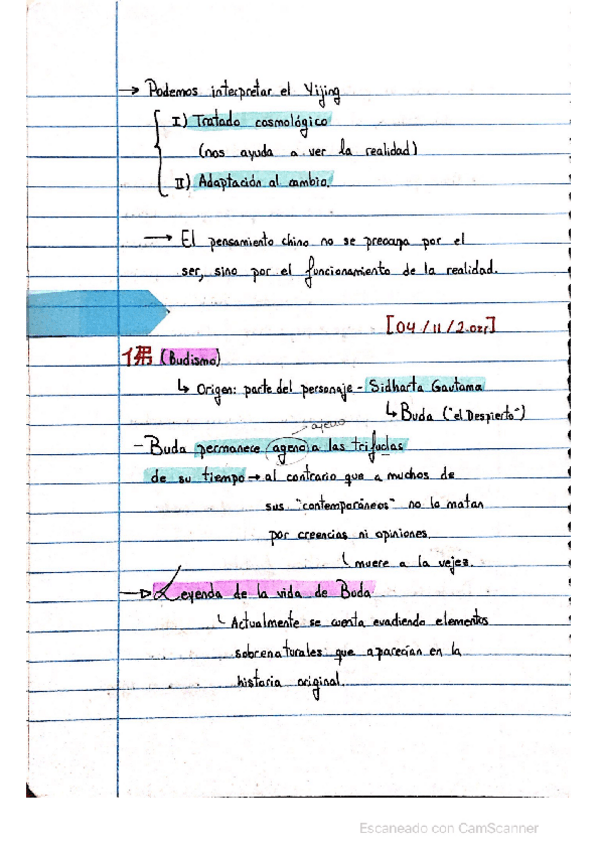 → Podemos interpretar el Yijing
I) Tratado cosmológico
(nos ayuda a ver la realidad)
II) Adaptación al cambio.
→ El pensamiento chino no se preocupa por el
ser, sino por el funcionamiento de la realidad.
[04/11/2025]
佛 (Budismo)
↳ Origen: parte del personaje - Sidharta Gautama
↳ Buda ("el Despierto")
ajeno
- Buda permanece ageno a las trifulcas
de su tiempo → al contrario que a muchos de
sus "contemporáneos" no lo matan
por creencias ni opiniones.
muere a la vejez.
→ Leyenda de la vida de Buda
Actualmente se cuenta evadiendo elementos
sobrenaturales que aparecían en la
historia original.
Escaneado con CamScanner